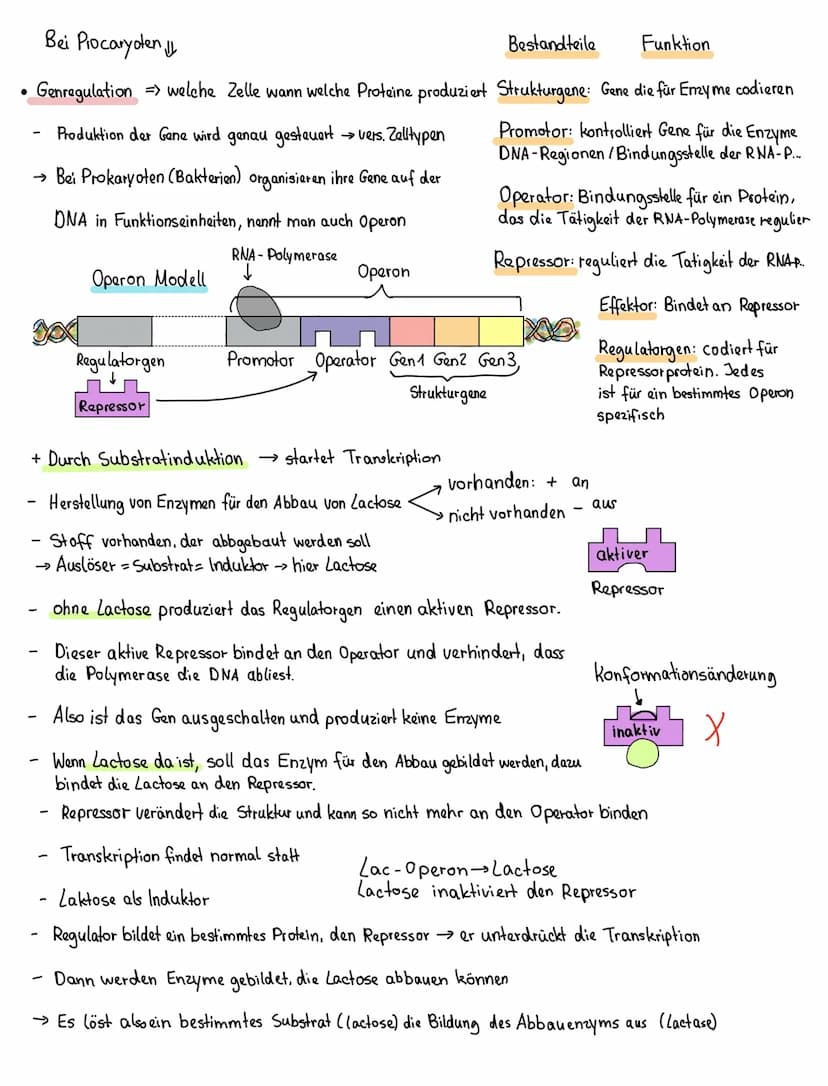 Bei Procaryoten ⇓
• Genregulation ⇒ welche Zelle wann welche Proteine produziert
- Produktion der Gene wird genau gesteuert → vers. Zelltypen
→ Bei Prokaryoten (Bakterien) organisieren ihre Gene auf der
DNA in Funktionseinheiten, nennt man auch Operon
Bestandteile Funktion
Strukturgene: Gene die für Enzyme codieren
Promotor: kontrolliert Gene für die Enzyme
DNA-Regionen / Bindungsstelle der RNA-P...
Operator: Bindungsstelle für ein Protein,
das die Tätigkeit der RNA-Polymerase regulier
Repressor: reguliert die Tätigkeit der RNAP..
Effektor: Bindet an Repressor
Regulatorgen: codiert für
Repressorprotein. Jedes
ist für ein bestimmtes Operon
spezifisch
Operon Modell
RNA-Polymerase
Operon
Regulatorgen Promotor Operator Gen1 Gen2 Gen3
Strukturgene
Repressor
+ Durch Substratinduktion → startet Transkription
- Herstellung von Enzymen für den Abbau von Lactose
vorhanden: + an
nicht vorhanden - aus
- Stoff vorhanden, der abbgebaut werden soll
→ Auslöser = Substrat = Induktor → hier Lactose
aktiver
Repressor
- ohne Lactose produziert das Regulatorgen einen aktiven Repressor.
- Dieser aktive Repressor bindet an den Operator und verhindert, dass
die Polymerase die DNA abliest.
Konformationsänderung
inaktiv X
- Also ist das Gen ausgeschalten und produziert keine Enzyme
- Wenn Lactose da ist, soll das Enzym für den Abbau gebildet werden, dazu
bindet die Lactose an den Repressor.
- Repressor verändert die Struktur und kann so nicht mehr an den Operator binden
- Transkription findet normal statt
- Laktose als Induktor
Lac-Operon → Lactose
Lactose inaktiviert den Repressor
- Regulator bildet ein bestimmtes Protein, den Repressor → er unterdrückt die Transkription
- Dann werden Enzyme gebildet, die Lactose abbauen können
→ Es löst also ein bestimmtes Substrat (lactose) die Bildung des Abbauenzyms aus (lactase)